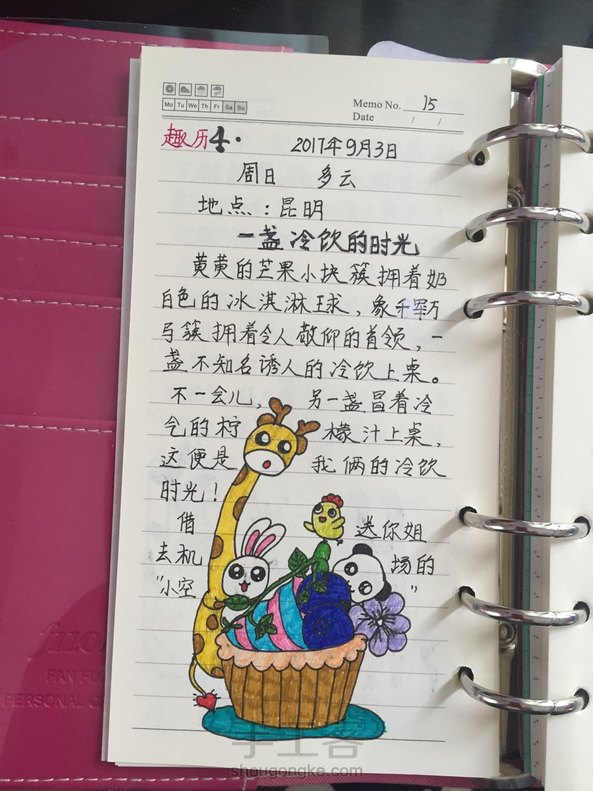 Mo Tu We Th Fr Sa Su
Memo No. 15
Date / /
趣历4. 2017年9月3日
周日 多云
地点：昆明
一盏冷饮的时光
黄黄的芒果小块簇拥着奶
白色的冰淇淋球，象千军万
马簇拥着令人敬仰的首领，一
盏不知名诱人的冷饮上桌。
不一会儿，另一盏冒着冷
气的柠檬汁上桌，
这便是我俩的冷饮
时光！
借送你姐
去机场的
"小空"
FAN FL
PERSONAL
手工客
shougongke.com